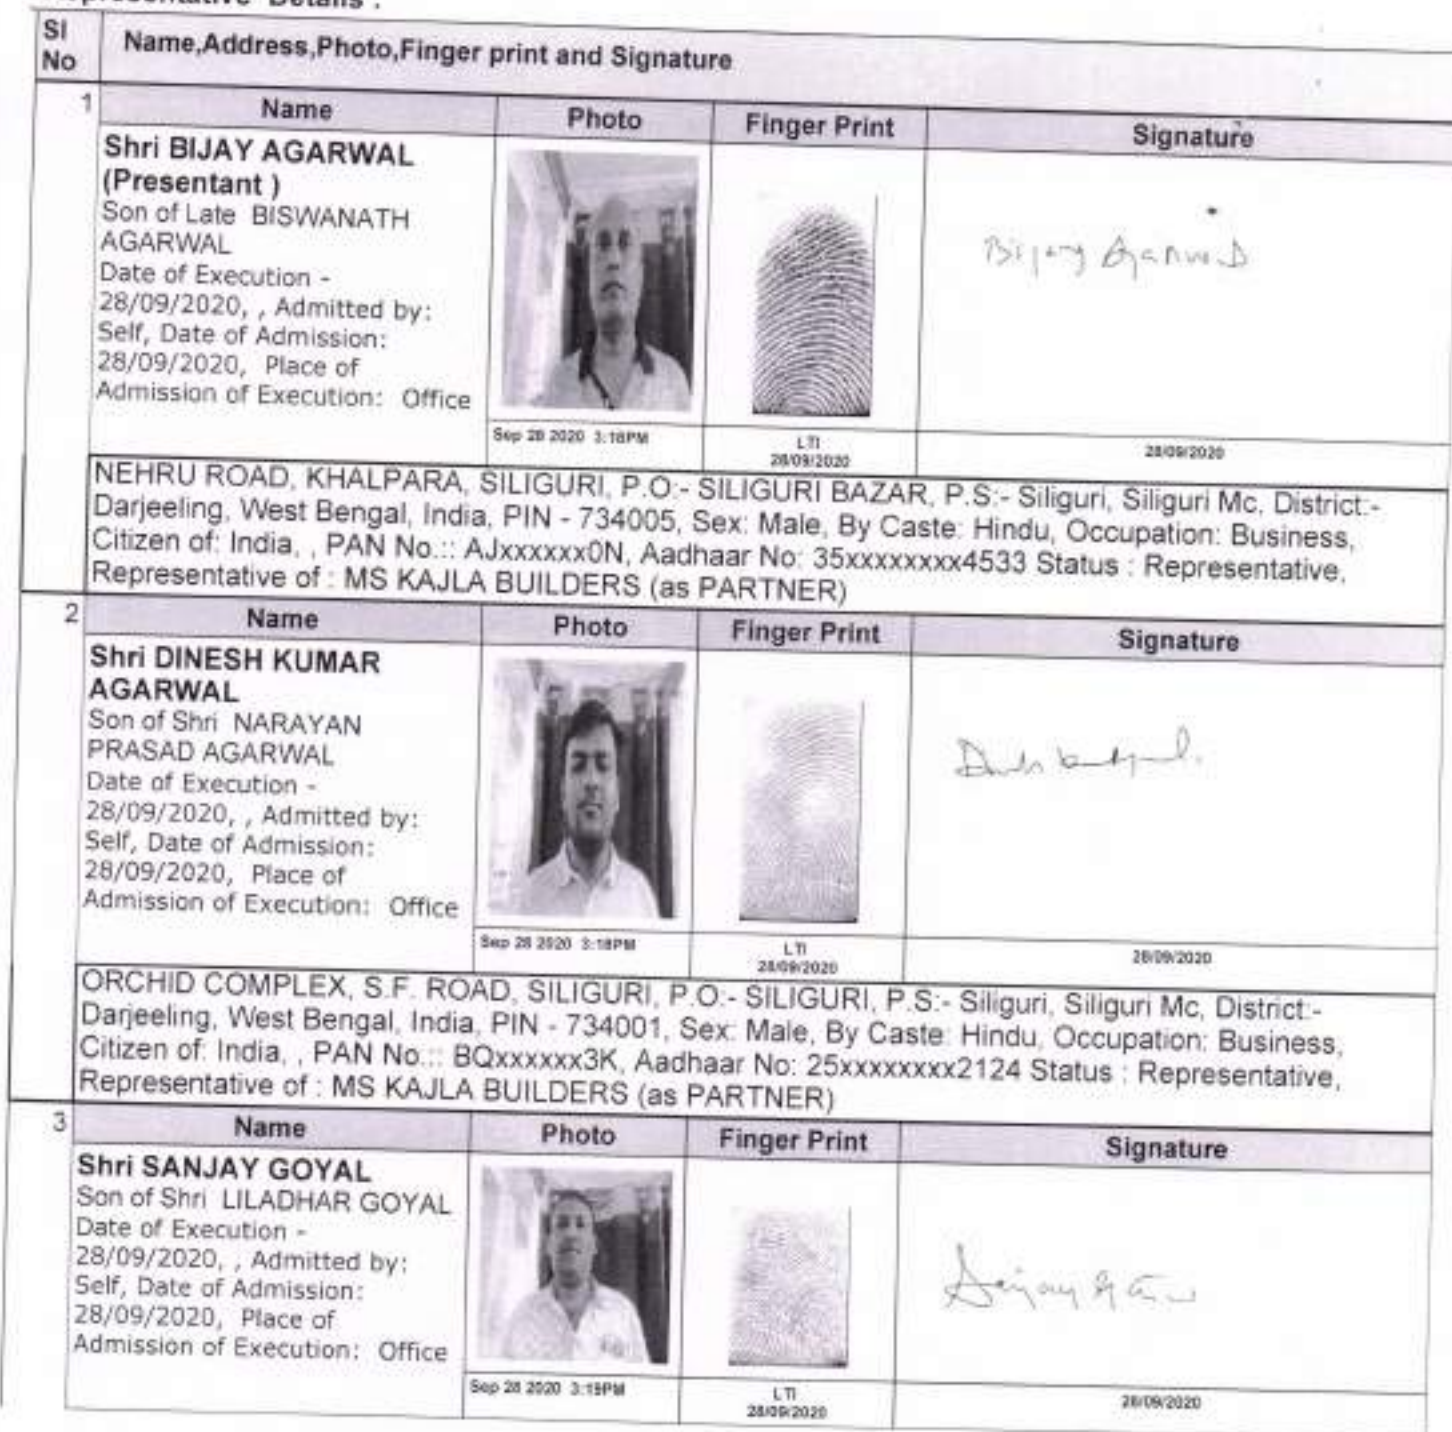 Representative Details :
SI No Name,Address,Photo,Finger print and Signature
1 Name Photo Finger Print Signature
Shri BIJAY AGARWAL
(Presentant )
Son of Late BISWANATH
AGARWAL
Date of Execution -
28/09/2020, , Admitted by:
Self, Date of Admission:
28/09/2020, Place of
Admission of Execution: Office
Bijay Agarwal
Sep 28 2020 3:18PM
LTI
28/09/2020
28/09/2020
NEHRU ROAD, KHALPARA, SILIGURI, P.O:- SILIGURI BAZAR, P.S:- Siliguri, Siliguri Mc, District:-
Darjeeling, West Bengal, India, PIN - 734005, Sex: Male, By Caste: Hindu, Occupation: Business,
Citizen of: India, , PAN No.:: AJxxxxxx0N, Aadhaar No: 35xxxxxxxx4533 Status : Representative,
Representative of : MS KAJLA BUILDERS (as PARTNER)
2 Name Photo Finger Print Signature
Shri DINESH KUMAR
AGARWAL
Son of Shri NARAYAN
PRASAD AGARWAL
Date of Execution -
28/09/2020, , Admitted by:
Self, Date of Admission:
28/09/2020, Place of
Admission of Execution: Office
Sep 28 2020 3:18PM
LTI
28/09/2020
28/09/2020
ORCHID COMPLEX, S.F. ROAD, SILIGURI, P.O:- SILIGURI, P.S:- Siliguri, Siliguri Mc, District:-
Darjeeling, West Bengal, India, PIN - 734001, Sex: Male, By Caste: Hindu, Occupation: Business,
Citizen of: India, , PAN No.:: BQxxxxxx3K, Aadhaar No: 25xxxxxxxx2124 Status : Representative,
Representative of : MS KAJLA BUILDERS (as PARTNER)
3 Name Photo Finger Print Signature
Shri SANJAY GOYAL
Son of Shri LILADHAR GOYAL
Date of Execution -
28/09/2020, , Admitted by:
Self, Date of Admission:
28/09/2020, Place of
Admission of Execution: Office
Sanjay
Sep 28 2020 3:19PM
LTI
28/09/2020
28/09/2020